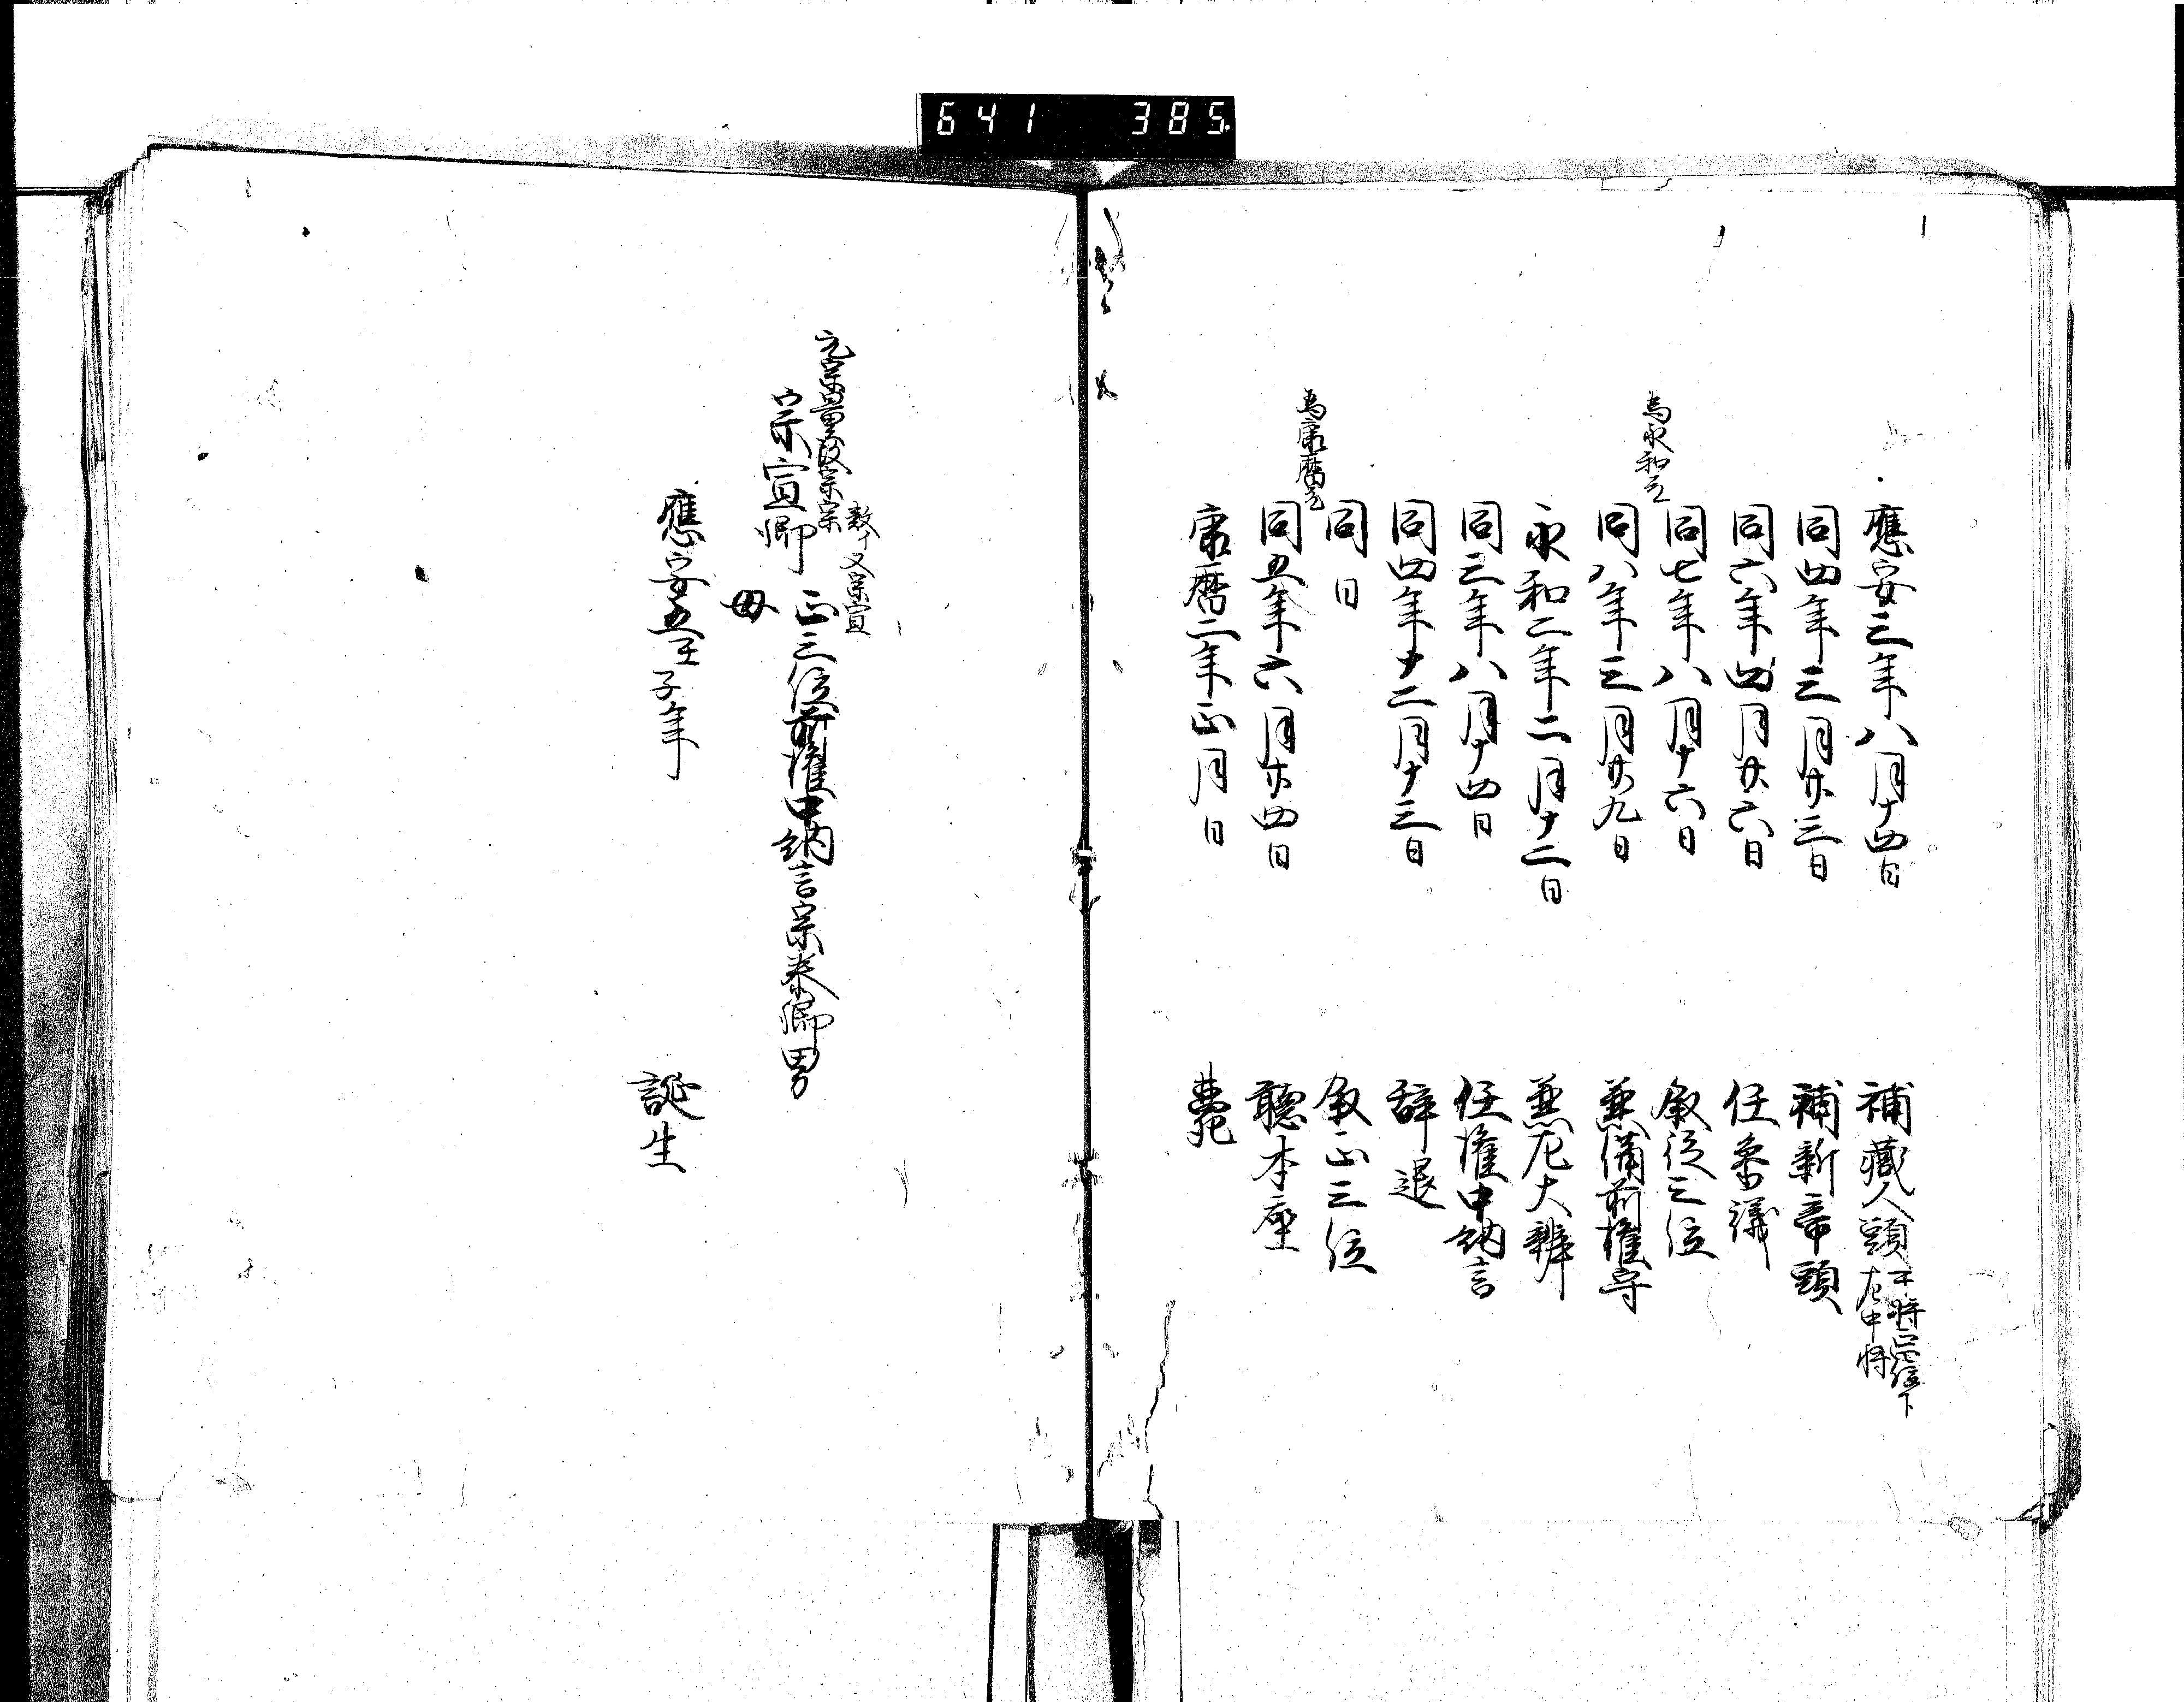 641 385
應安三年八月十四日 補藏人頭 于時正四位下 左中将
同四年三月廿三日 補新帝頭
同六年四月廿六日 任参議
同七年八月十六日 叙従三位
為永和元
同八年三月廿九日 兼備前権守
永和二年二月十二日 兼左大辨
同三年八月十四日 任権中納言
同四年十二月十三日 辞退
同日 叙正三位
為康暦元
同五年六月廿四日 聴本座
康暦二年正月 日 薨
元宗量改宗宗 又宗宣
宗宣卿 正三位前権中納言宗泰卿男
母
應安五壬子年 誕生